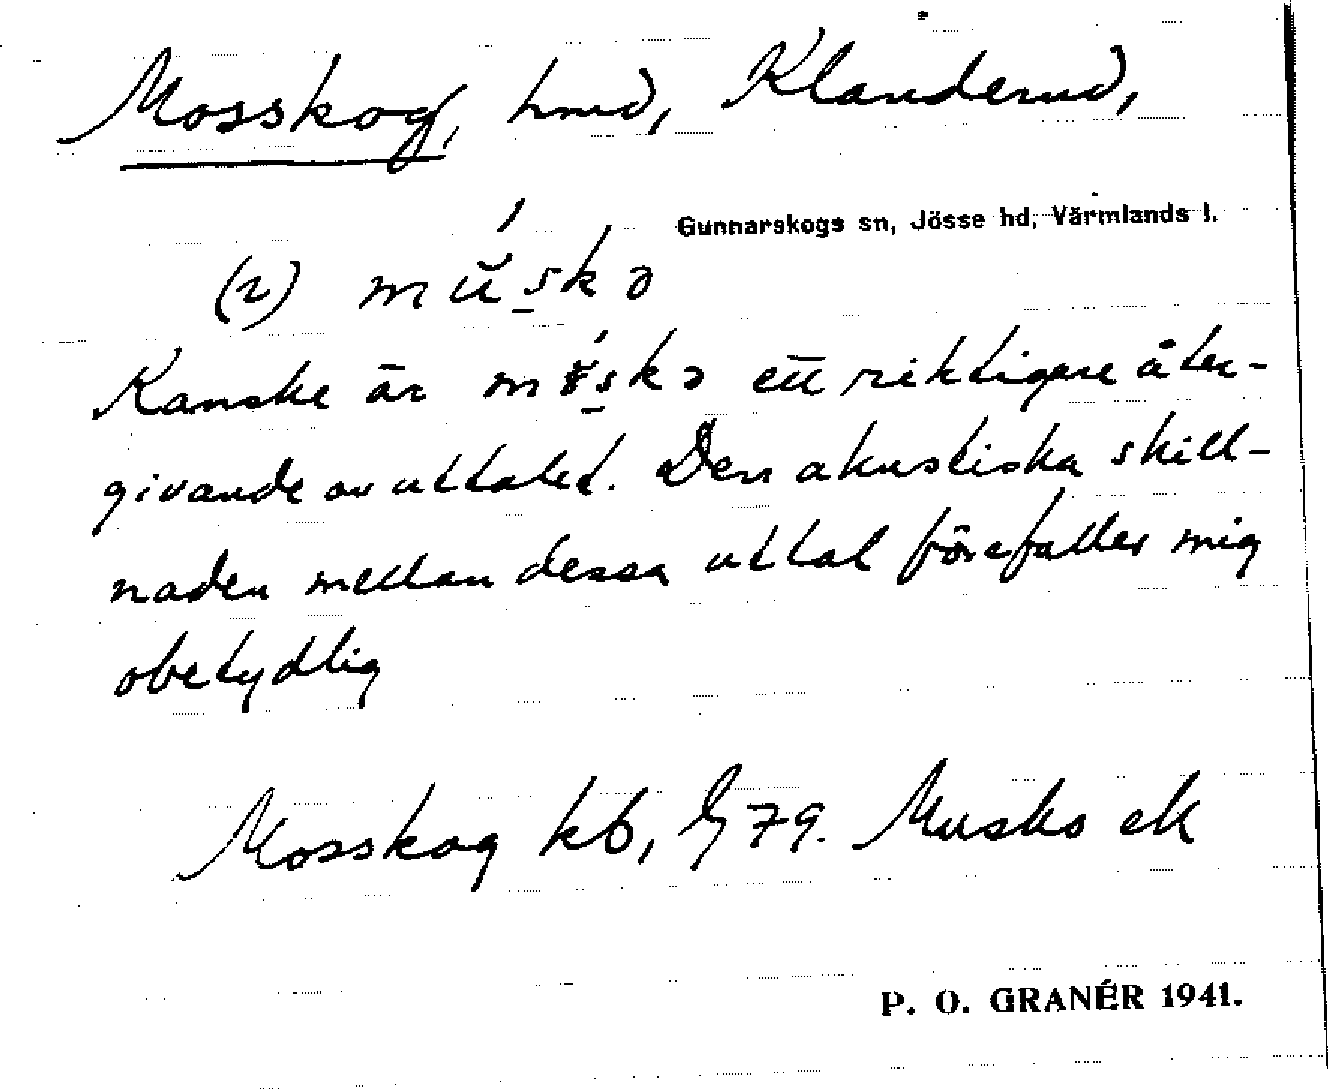 Mosskog, hmd, Klanderud,
Gunnarskogs sn, Jösse hd, Värmlands l.
(2) mŭ́skə
Kanske är mskə ett riktigare åter-
givande av uttalet. Den akustiska skill-
naden mellan dessa uttal förefaller mig
obetydlig
Mosskog kb, G 79. Musko ek
P. O. GRANÉR 1941.